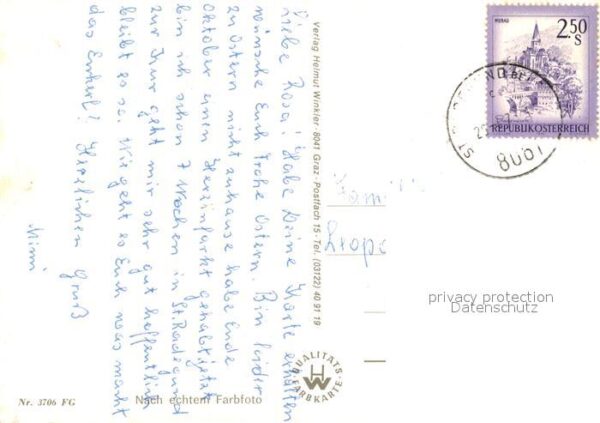 Liebe Rosa! Habe Deine Karte erhalten
wünsche Euch frohe Ostern. Bin leider
zu Ostern nicht zuhause habe Ende
Oktober einen Herzinfarkt gehabt jetzt
bin ich schon 7 Wochen in St. Radegund
zur Kur geht mir sehr gut hoffentlich
bleibt es so. Wie geht es Euch was macht
das Enkerl? Herzlichen Gruß
Mimi
Verlag Helmut Winkler · 8041 Graz · Postfach 15 · Tel. (03122) 40 91 19
MURAU
2.50
S
REPUBLIK ÖSTERREICH
8061
Fami
Leopo
privacy protection
Datenschutz
QUALITÄTS-
HW
FARBKARTE
Nr. 3706 FG
Nach echtem Farbfoto